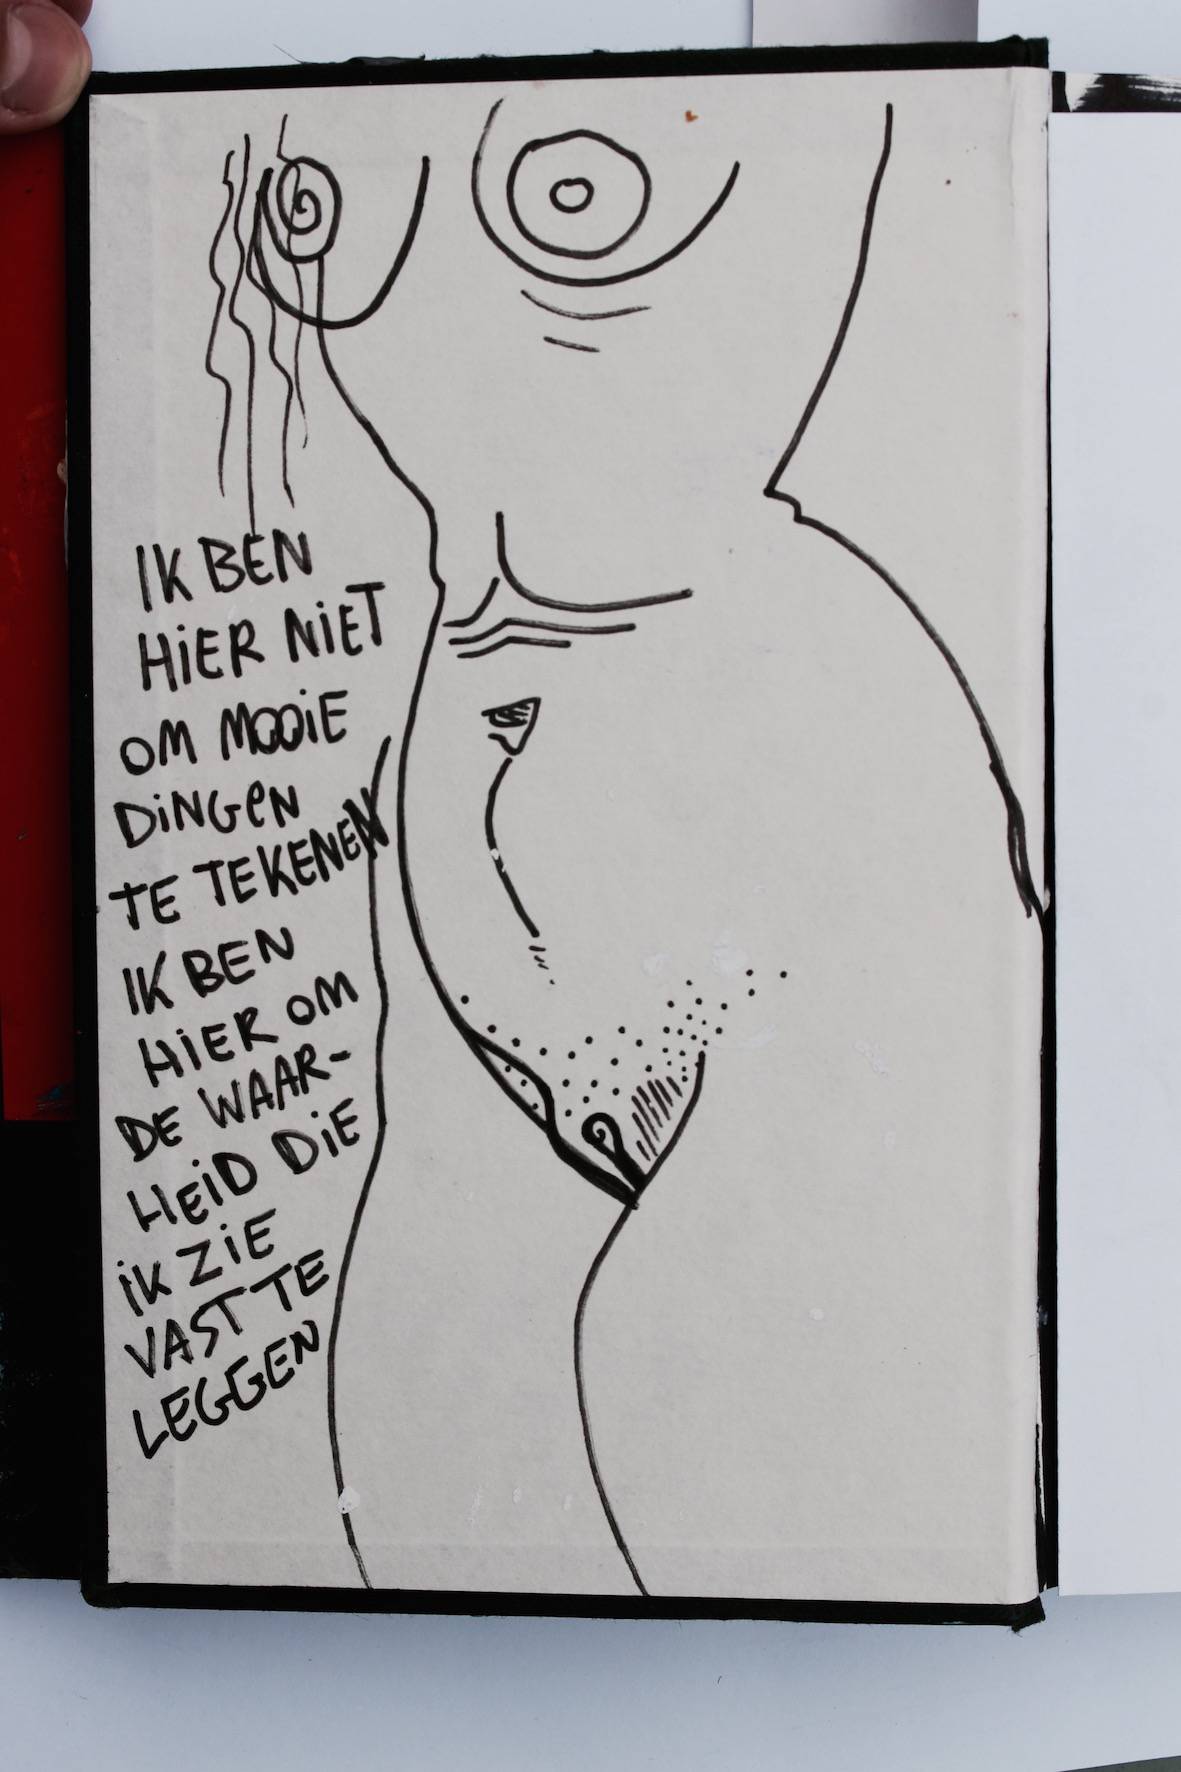 IK BEN
HiER NiET
OM MOOiE
DiNGeN
TE TEKENEN
IK BEN
HiER OM
DE WAAR-
HEiD DiE
iK ZiE
VAST TE
LEGGEN